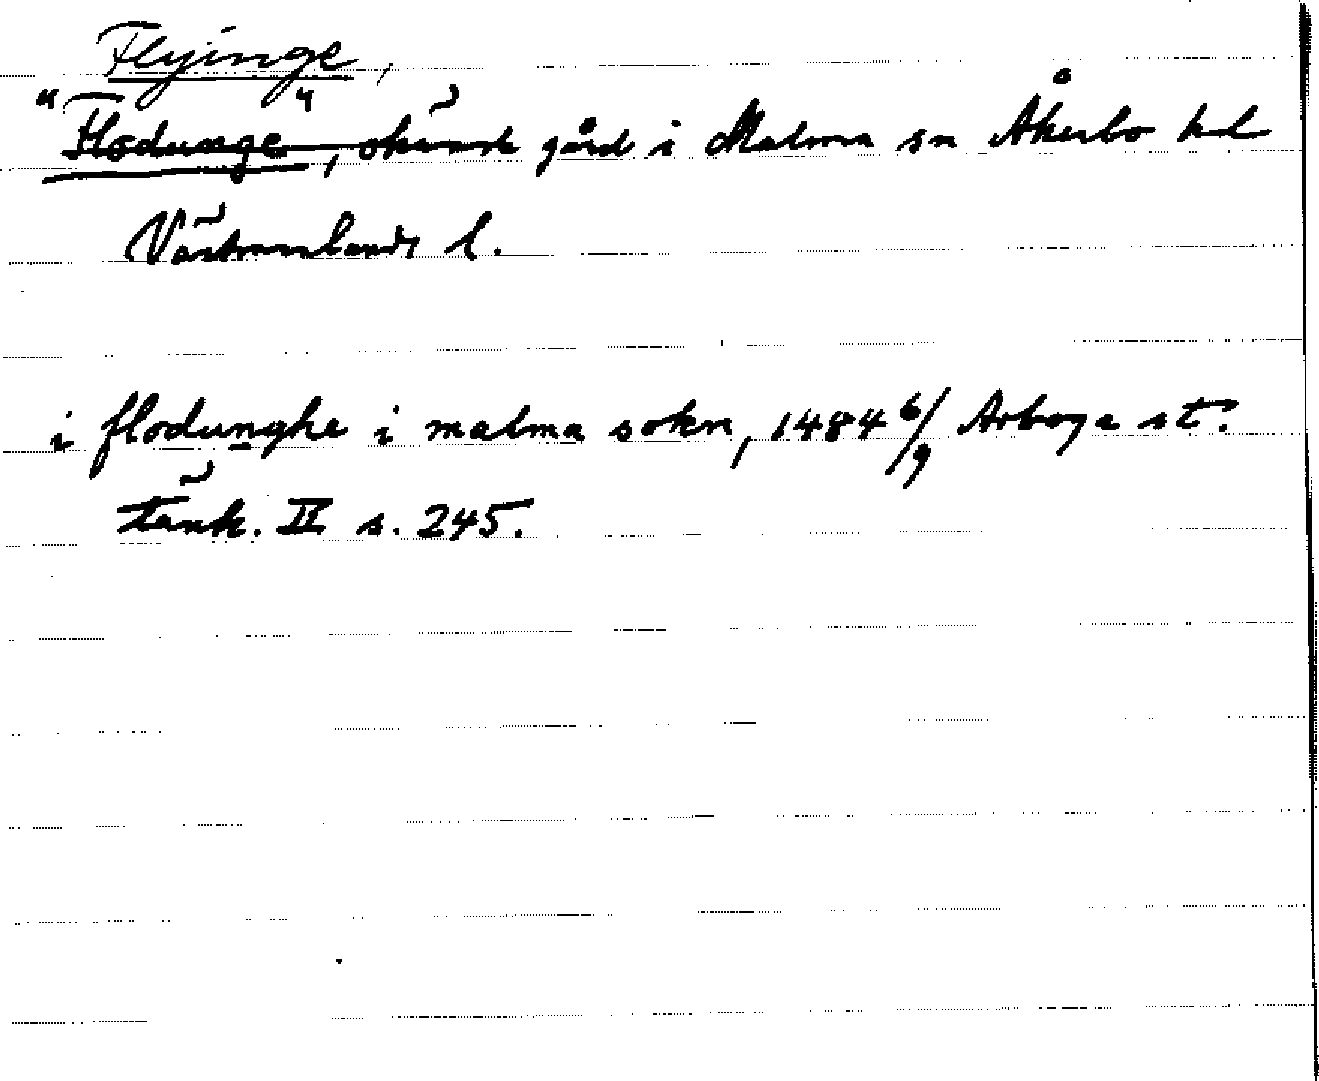 Flyinge,
"Flodunge", okänd gård i Malma sn Åkerbo hd
Västmanlands l.
i flodunghe i malma sokn, 1484 6/9 Arboga st:
tänk. II s. 245.